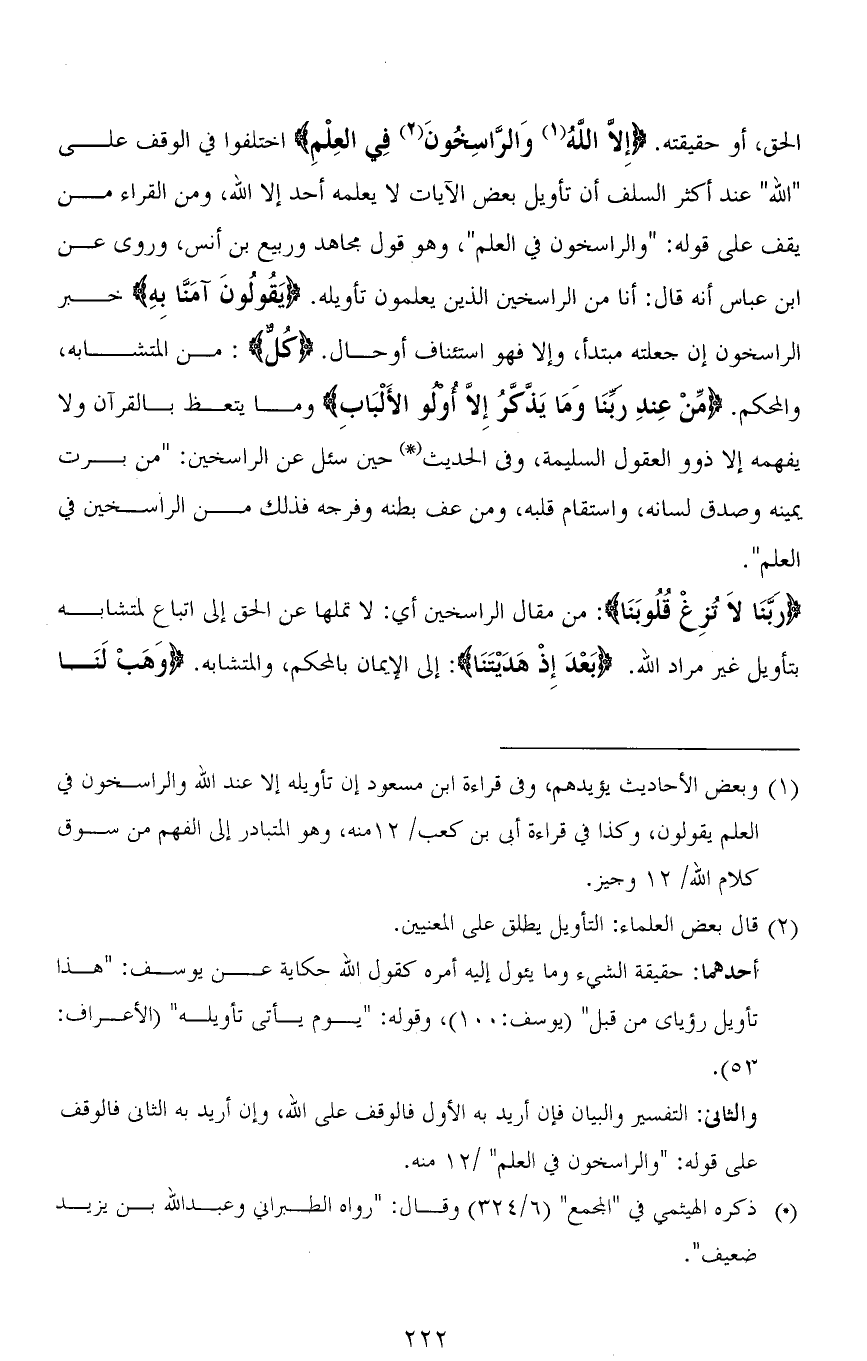 الحق، أو حقيقته. ﴿إِلاَّ اللَّهُ(١) وَالرَّاسِخُونَ(٢) فِي العِلْمِ﴾ اختلفوا في الوقف على
"الله" عند أكثر السلف أن تأويل بعض الآيات لا يعلمه أحد إلا الله، ومن القراء من
يقف على قوله: "والراسخون في العلم"، وهو قول مجاهد وربيع بن أنس، وروى عن
ابن عباس أنه قال: أنا من الراسخين الذين يعلمون تأويله. ﴿يَقُولُونَ آمَنَّا بِهِ﴾ خبر
الراسخون إن جعلته مبتدأ، وإلا فهو استئناف أوحال. ﴿كُلٌّ﴾ : من المتشابه،
والمحكم. ﴿مِّنْ عِندِ رَبِّنَا وَمَا يَذَّكَّرُ إِلاَّ أُوْلُو الأَلْبَابِ﴾ وما يتعظ بالقرآن ولا
يفهمه إلا ذوو العقول السليمة، وفى الحديث(*) حين سئل عن الراسخين: "من برت
يمينه وصدق لسانه، واستقام قلبه، ومن عف بطنه وفرجه فذلك من الراسخين في
العلم".
﴿رَبَّنَا لاَ تُزِغْ قُلُوبَنَا﴾: من مقال الراسخين أي: لا تملها عن الحق إلى اتباع لمتشابه
بتأويل غير مراد الله. ﴿بَعْدَ إِذْ هَدَيْتَنَا﴾: إلى الإيمان بالمحكم، والمتشابه. ﴿وَهَبْ لَنَا
(١) وبعض الأحاديث يؤيدهم، وفى قراءة ابن مسعود إن تأويله إلا عند الله والراسخون في
العلم يقولون، وكذا في قراءة أبى بن كعب/ ١٢منه، وهو المتبادر إلى الفهم من سوق
كلام الله/ ١٢ وجيز.
(٢) قال بعض العلماء: التأويل يطلق على المعنيين.
أحدهما: حقيقة الشيء وما يئول إليه أمره كقول الله حكاية عن يوسف: "هذا
تأويل رؤياى من قبل" (يوسف:١٠٠)، وقوله: "يوم يأتى تأويله" (الأعراف:
٥٣).
والثانى: التفسير والبيان فإن أريد به الأول فالوقف على الله، وإن أريد به الثانى فالوقف
على قوله: "والراسخون في العلم" /١٢ منه.
(*) ذكره الهيثمي في "المجمع" (٣٢٤/٦) وقال: "رواه الطبراني وعبدالله بن يزيد
ضعيف".
٢٢٢